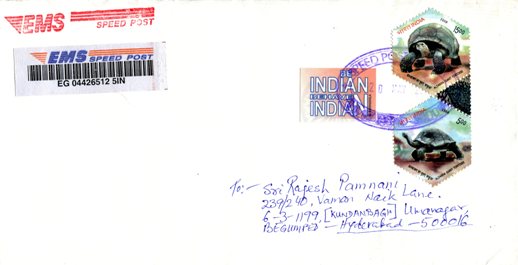 EMS
SPEED POST
EMS SPEED POST
EG 04426512 5IN
BE
INDIAN
BEHAVE
INDIAN
SPEED PO
INDIA
5.00
INDIA
5.00
To:-
Sri Rajesh Pamnani
239/240, Vaman Naik Lane.
6-3-1199, [KUNDANBAGH] Umanagar,
BEGUMPET - Hyderabad - 500016